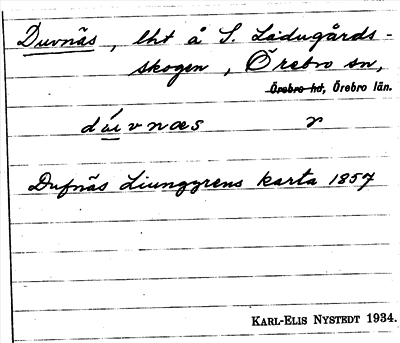 Duvnäs, lht å S. Ladugårds-
skogen, Örebro sn,
Örebro hd, Örebro län.
dúvnæs r
Dufnäs Ljunggrens karta 1857
KARL-ELIS NYSTEDT 1934.